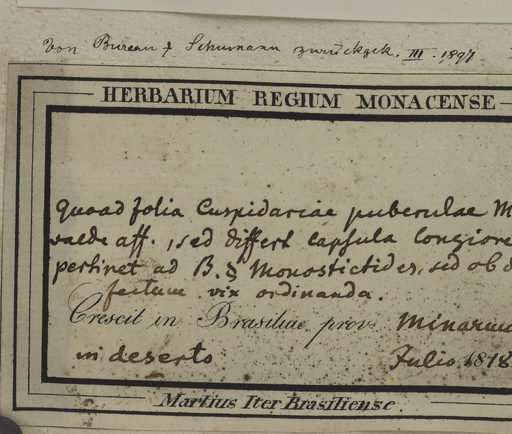 Von Bureau & Schumann zurückgek. III. 1897
HERBARIUM REGIUM MONACENSE
Quoad folia Cuspidariae puberulae M
valde aff., sed differt capsula longiore
pertinet ad B. § Monostictides, sed ob d
fectum vix ordinanda.
Crescit in Brasiliae prov. Minarum
in deserto Julio 1818
Martius Iter Brasiliense.